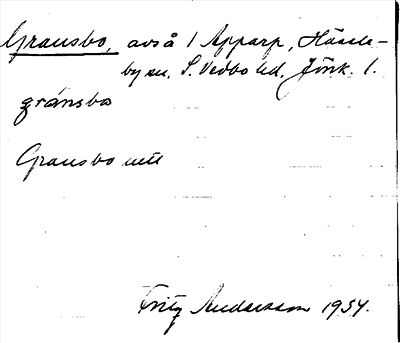 Gransbo, avs å 1 Apparp, Hässle-
by sn, S. Vedbo hd. Jönk. l.
gránsbo
Gransbo
Fritz Andersson 1934.